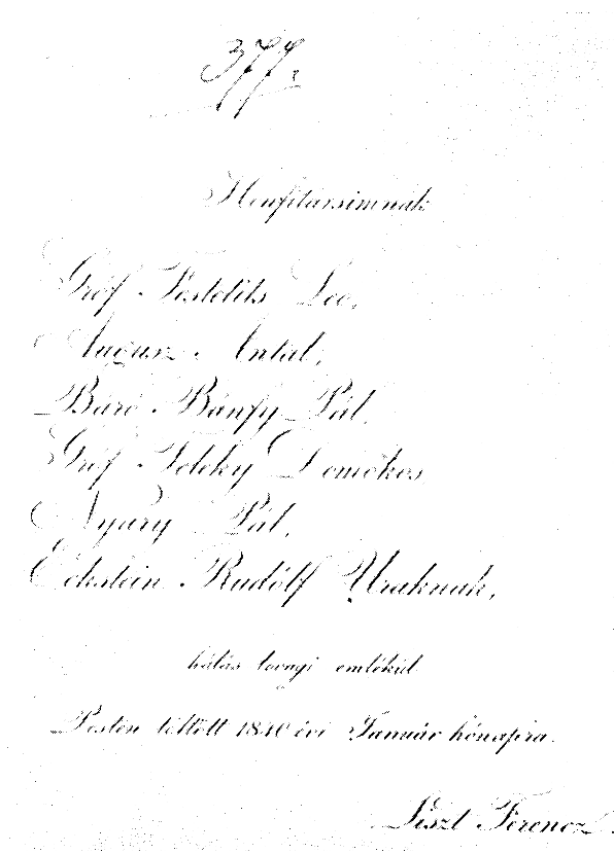 377.
Honfitársimnak
Gróf Festetits Leo,
Augusz Antal,
Báró Bánfy Pál,
Gróf Teleky Domokos,
Nyáry Pál,
Eckstein Rudólf Uraknak,
hálás lovagi emlékűl
Pesten töltött 1840 évi Január hónapira.
Liszt Ferencz